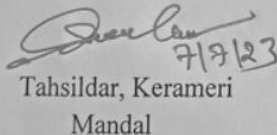 7/7/23
Tahsildar, Kerameri
Mandal